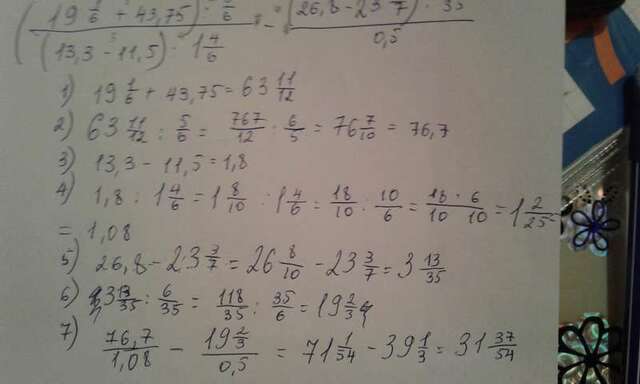 (13,3 - 11,5) : 1 4/6
0,5
1) 19 1/6 + 43,75 = 63 11/12
2) 63 11/12 : 5/6 = 767/12 · 6/5 = 76 7/10 = 76,7
3) 13,3 - 11,5 = 1,8
4) 1,8 : 1 4/6 = 1 8/10 : 1 4/6 = 18/10 : 10/6 = 18 · 6/10 · 10 = 1 2/25 =
= 1,08
5) 26,8 - 23 3/7 = 26 8/10 - 23 3/7 = 3 13/35
6) 3 13/35 : 6/35 = 118/35 : 35/6 = 19 2/3
7) 76,7/1,08 - 19 2/3/0,5 = 71 1/54 - 39 1/3 = 31 37/54